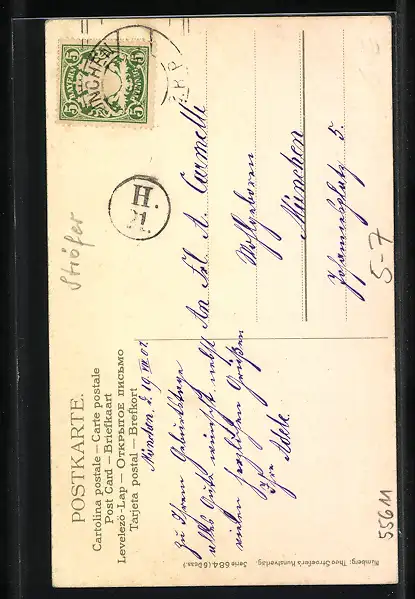 POSTKARTE.
Cartolina postale – Carte postale
Post Card – Briefkaart
Levelező-Lap – Открытое письмо
Tarjeta postal – Brefkort
München, d. 19. VII. 07.
Zu Ihrem Geburtstage
alles Gute wünscht nebst
vielen herzlichen Grüßen
Ihre Adele.
An Frl. A. Carmelli
Wohlgeboren
München
Johannisplatz 5.
BAYERN
5 5
5 5
PFENNIG
MÜNCHEN
H.
21.
Ströfer
5-7
55611
Serie 684 (6 Dess.)
Nürnberg: Theo Stroefer's Kunstverlag.